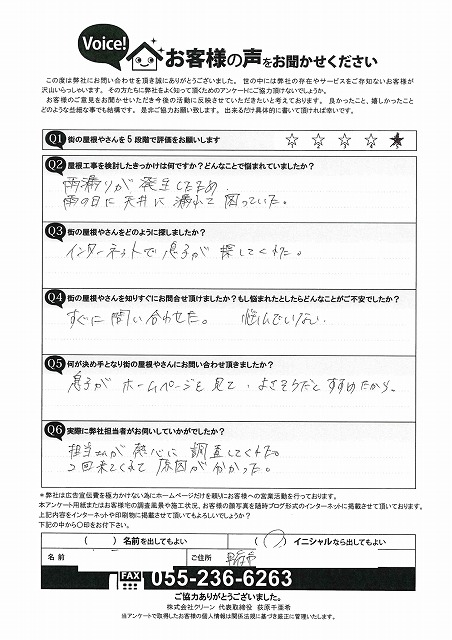 Voice!
お客様の声をお聞かせください
この度は弊社にお問い合わせを頂き誠にありがとうございました。 世の中には弊社の存在やサービスをご存知ないお客様が
沢山いらっしゃいます。 その方たちに弊社をよく知って頂くためのアンケートにご協力頂けないでしょうか。
お客様のご意見をお聞かせいただき今後の活動に反映させていただきたいと考えております。 良かったこと、嬉しかったこと
どのような些細な事でも結構です。 是非ご協力お願い致します。 出来るだけ具体的に書いて頂ければ幸いです。
Q1 街の屋根やさんを5段階で評価をお願いします
☆ ☆ ☆ ☆ ★
Q2 屋根工事を検討したきっかけは何ですか？どんなことで悩まれていましたか？
雨漏りが発生したため、
雨の日に天井に漏れて困っていた。
Q3 街の屋根やさんをどのように探しましたか？
インターネットで息子が探してくれた。
Q4 街の屋根やさんを知りすぐにお問合せ頂けましたか？もし悩まれたとしたらどんなことがご不安でしたか？
すぐに問い合わせた。 悩んでいない
Q5 何が決め手となり街の屋根やさんにお問い合わせ頂きましたか？
息子がホームページを見て、よさそうだとすすめたから。
Q6 実際に弊社担当者がお伺いしていかがでしたか？
担当さんが熱心に調査してくれた。
2回来てくれて原因がわかった。
＊弊社は広告宣伝費を極力かけない為にホームページだけを頼りにお客様への営業活動を行っております。
本アンケート用紙またはお客様宅の調査風景や施工状況、お客様の顔写真を随時ブログ形式のインターネットに掲載させて頂いております。
上記内容をインターネットや印刷物に掲載させて頂いてもよろしいでしょうか？
下記の中から〇印をお付下さい。
（ ）名前を出してもよい （〇）イニシャルなら出してもよい
名前 ご住所 甲府市
FAX 055-236-6263
ご協力ありがとうございました。
株式会社クリーン 代表取締役 荻原千亜希
当アンケートで取得したお客様の個人情報は関係法規に基づき厳正に管理いたします。